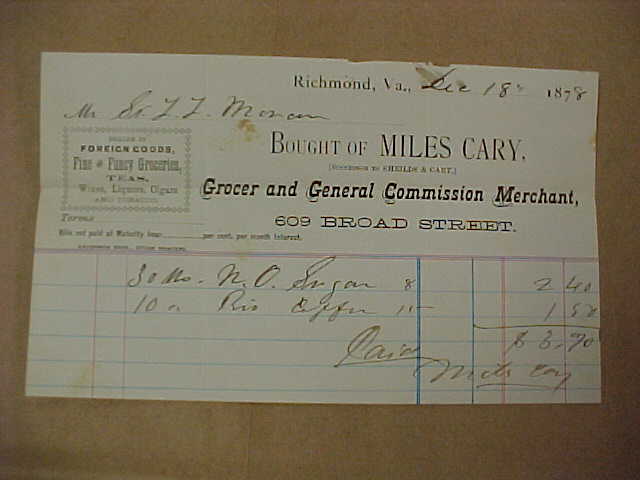 Richmond, Va., Dec 18 1878
Mr
BOUGHT OF MILES CARY,
[SUCCESSOR TO SHEILDS & CARY,]
Grocer and General Commission Merchant,
609 BROAD STREET.
DEALER IN
FOREIGN GOODS,
Fine and Fancy Groceries,
TEAS,
Wines, Liquors, Cigars
AND TOBACCO.
Terms
Bills not paid at Maturity bear per cent. per month Interest.
30 lbs. N.O. Sugar 8 2 40
10 " Rio Coffee 15 1 50
$ 3.90
Paid
Miles Cary